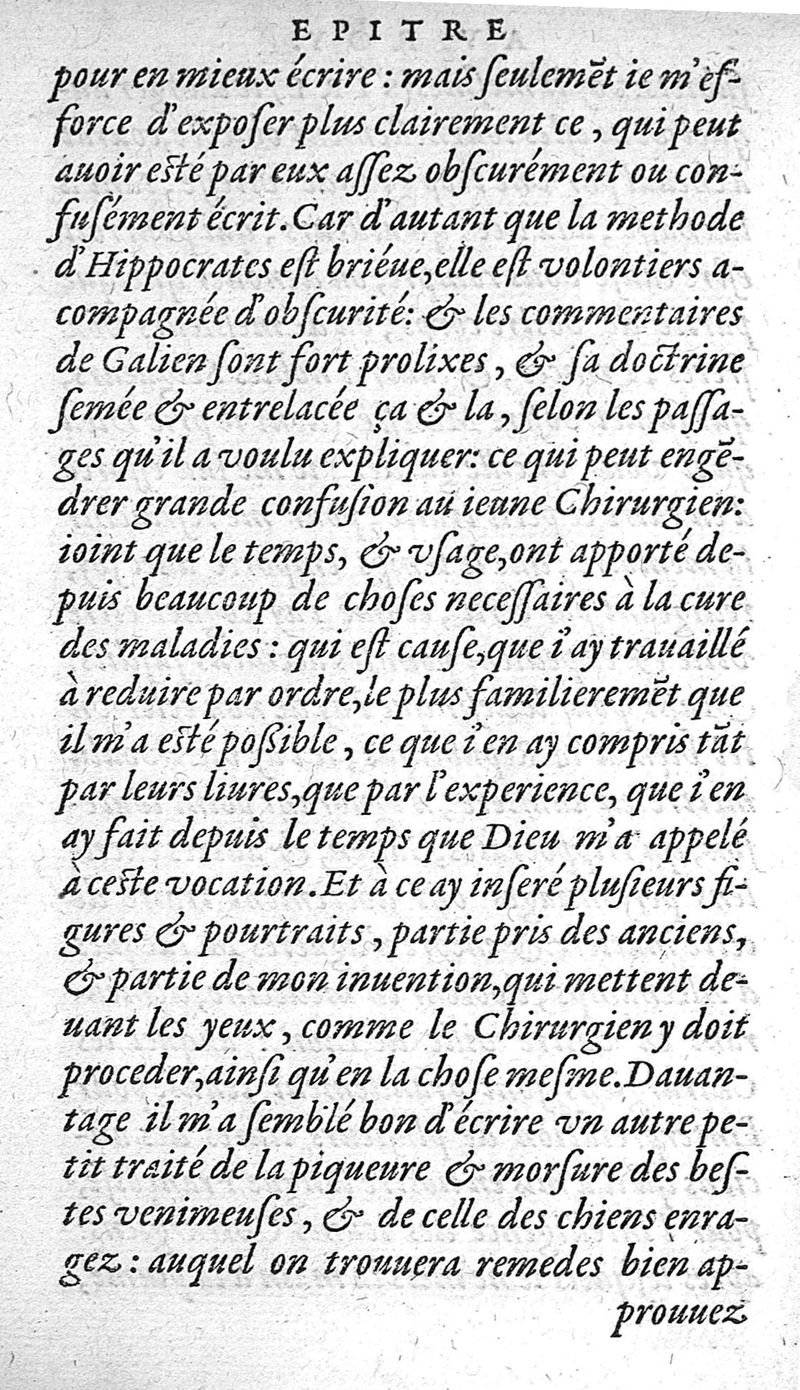 EPITRE
pour en mieux écrire : mais ſeulemẽt ie m'eſ-
force d'expoſer plus clairement ce , qui peut
auoir eſté par eux aſſez obſcurément ou con-
fuſément écrit. Car d'autant que la methode
d'Hippocrates eſt briéue, elle eſt volontiers a-
compagnée d'obſcurité: & les commentaires
de Galien ſont fort prolixes , & ſa doctrine
ſemée & entrelacée ça & la , ſelon les paſſa-
ges qu'il a voulu expliquer: ce qui peut engẽ-
drer grande confuſion au ieune Chirurgien:
ioint que le temps, & vſage, ont apporté de-
puis beaucoup de choſes neceſſaires à la cure
des maladies : qui eſt cauſe, que i'ay trauaillé
à reduire par ordre, le plus familieremẽt que
il m'a eſté poſsible , ce que i'en ay compris tãt
par leurs liures, que par l'experience, que i'en
ay fait depuis le temps que Dieu m'a appelé
à ceſte vocation. Et à ce ay inſeré pluſieurs fi-
gures & pourtraits , partie pris des anciens,
& partie de mon inuention, qui mettent de-
uant les yeux , comme le Chirurgien y doit
proceder, ainſi qu'en la choſe meſme. Dauan-
tage il m'a ſemblé bon d'écrire vn autre pe-
tit traité de la piqueure & morſure des beſ-
tes venimeuſes , & de celle des chiens enra-
gez : auquel on trouuera remedes bien ap-
prouuez